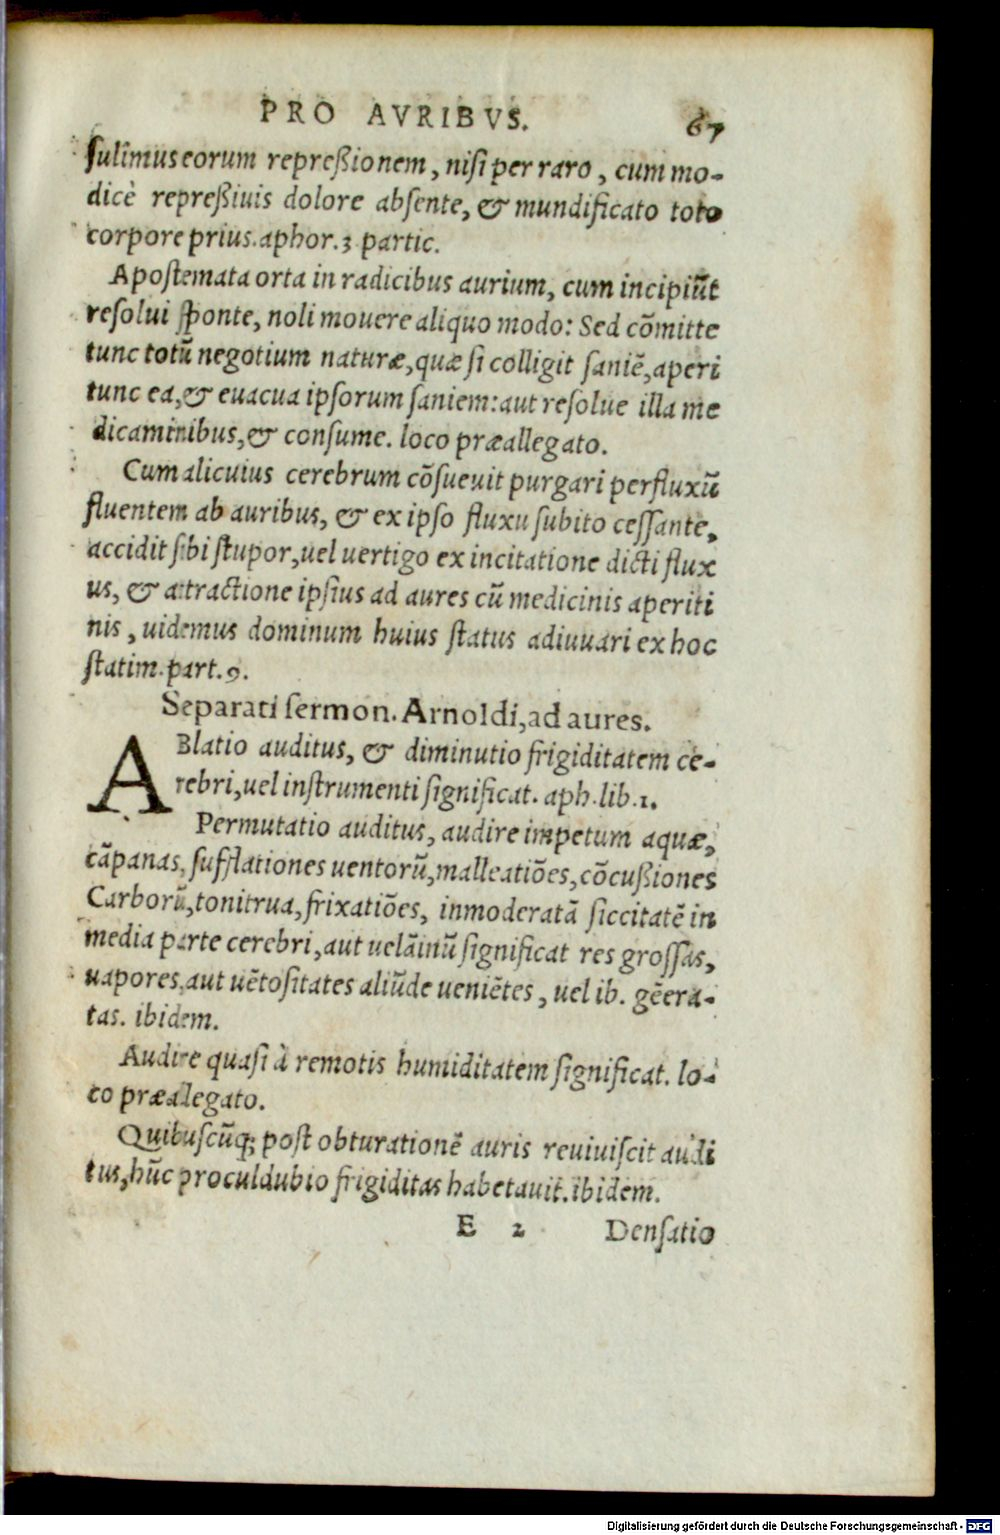 PRO AVRIBVS. 67
ſulimus eorum repreßionem, niſi per raro, cum mo-
dicè repreßiuis dolore abſente, & mundificato toto
corpore prius. aphor. 3 partic.
Apoſtemata orta in radicibus aurium, cum incipiūt
reſolui ſponte, noli mouere aliquo modo: Sed cōmitte
tunc totū negotium naturæ, quæ ſi colligit ſaniē, aperi
tunc ea, & euacua ipſorum ſaniem: aut reſolue illa me
dicaminibus, & conſume. loco præallegato.
Cum alicuius cerebrum cōſueuit purgari per fluxū
fluentem ab auribus, & ex ipſo fluxu ſubito ceſſante,
accidit ſibi ſtupor, uel uertigo ex incitatione dicti flux
us, & attractione ipſius ad aures cū medicinis aperiti
nis, uidemus dominum huius ſtatus adiuuari ex hoc
ſtatim. part. 9.
Separati ſermon. Arnoldi, ad aures.
ABlatio auditus, & diminutio frigiditatem ce-
rebri, uel inſtrumenti ſignificat. aph. lib. 1.
Permutatio auditus, audire impetum aquæ,
cāpanas, ſufflationes uentorū, malleatiōes, cōcußiones
Carborū, tonitrua, frixatiōes, inmoderatā ſiccitatē in
media parte cerebri, aut uelāinū ſignificat res groſſas,
uapores, aut uētoſitates aliūde ueniētes, uel ib. gēera-
tas. ibidem.
Audire quaſi à remotis humiditatem ſignificat. lo-
co præallegato.
Quibuſcūq; poſt obturationē auris reuiuiſcit audi
tus, hūc proculdubio frigiditas habetauit. ibidem.
E 2 Denſatio
Digitalisierung gefördert durch die Deutsche Forschungsgemeinschaft - DFG